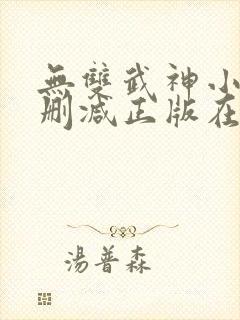 無雙武神小
刪減正版在
湯普森